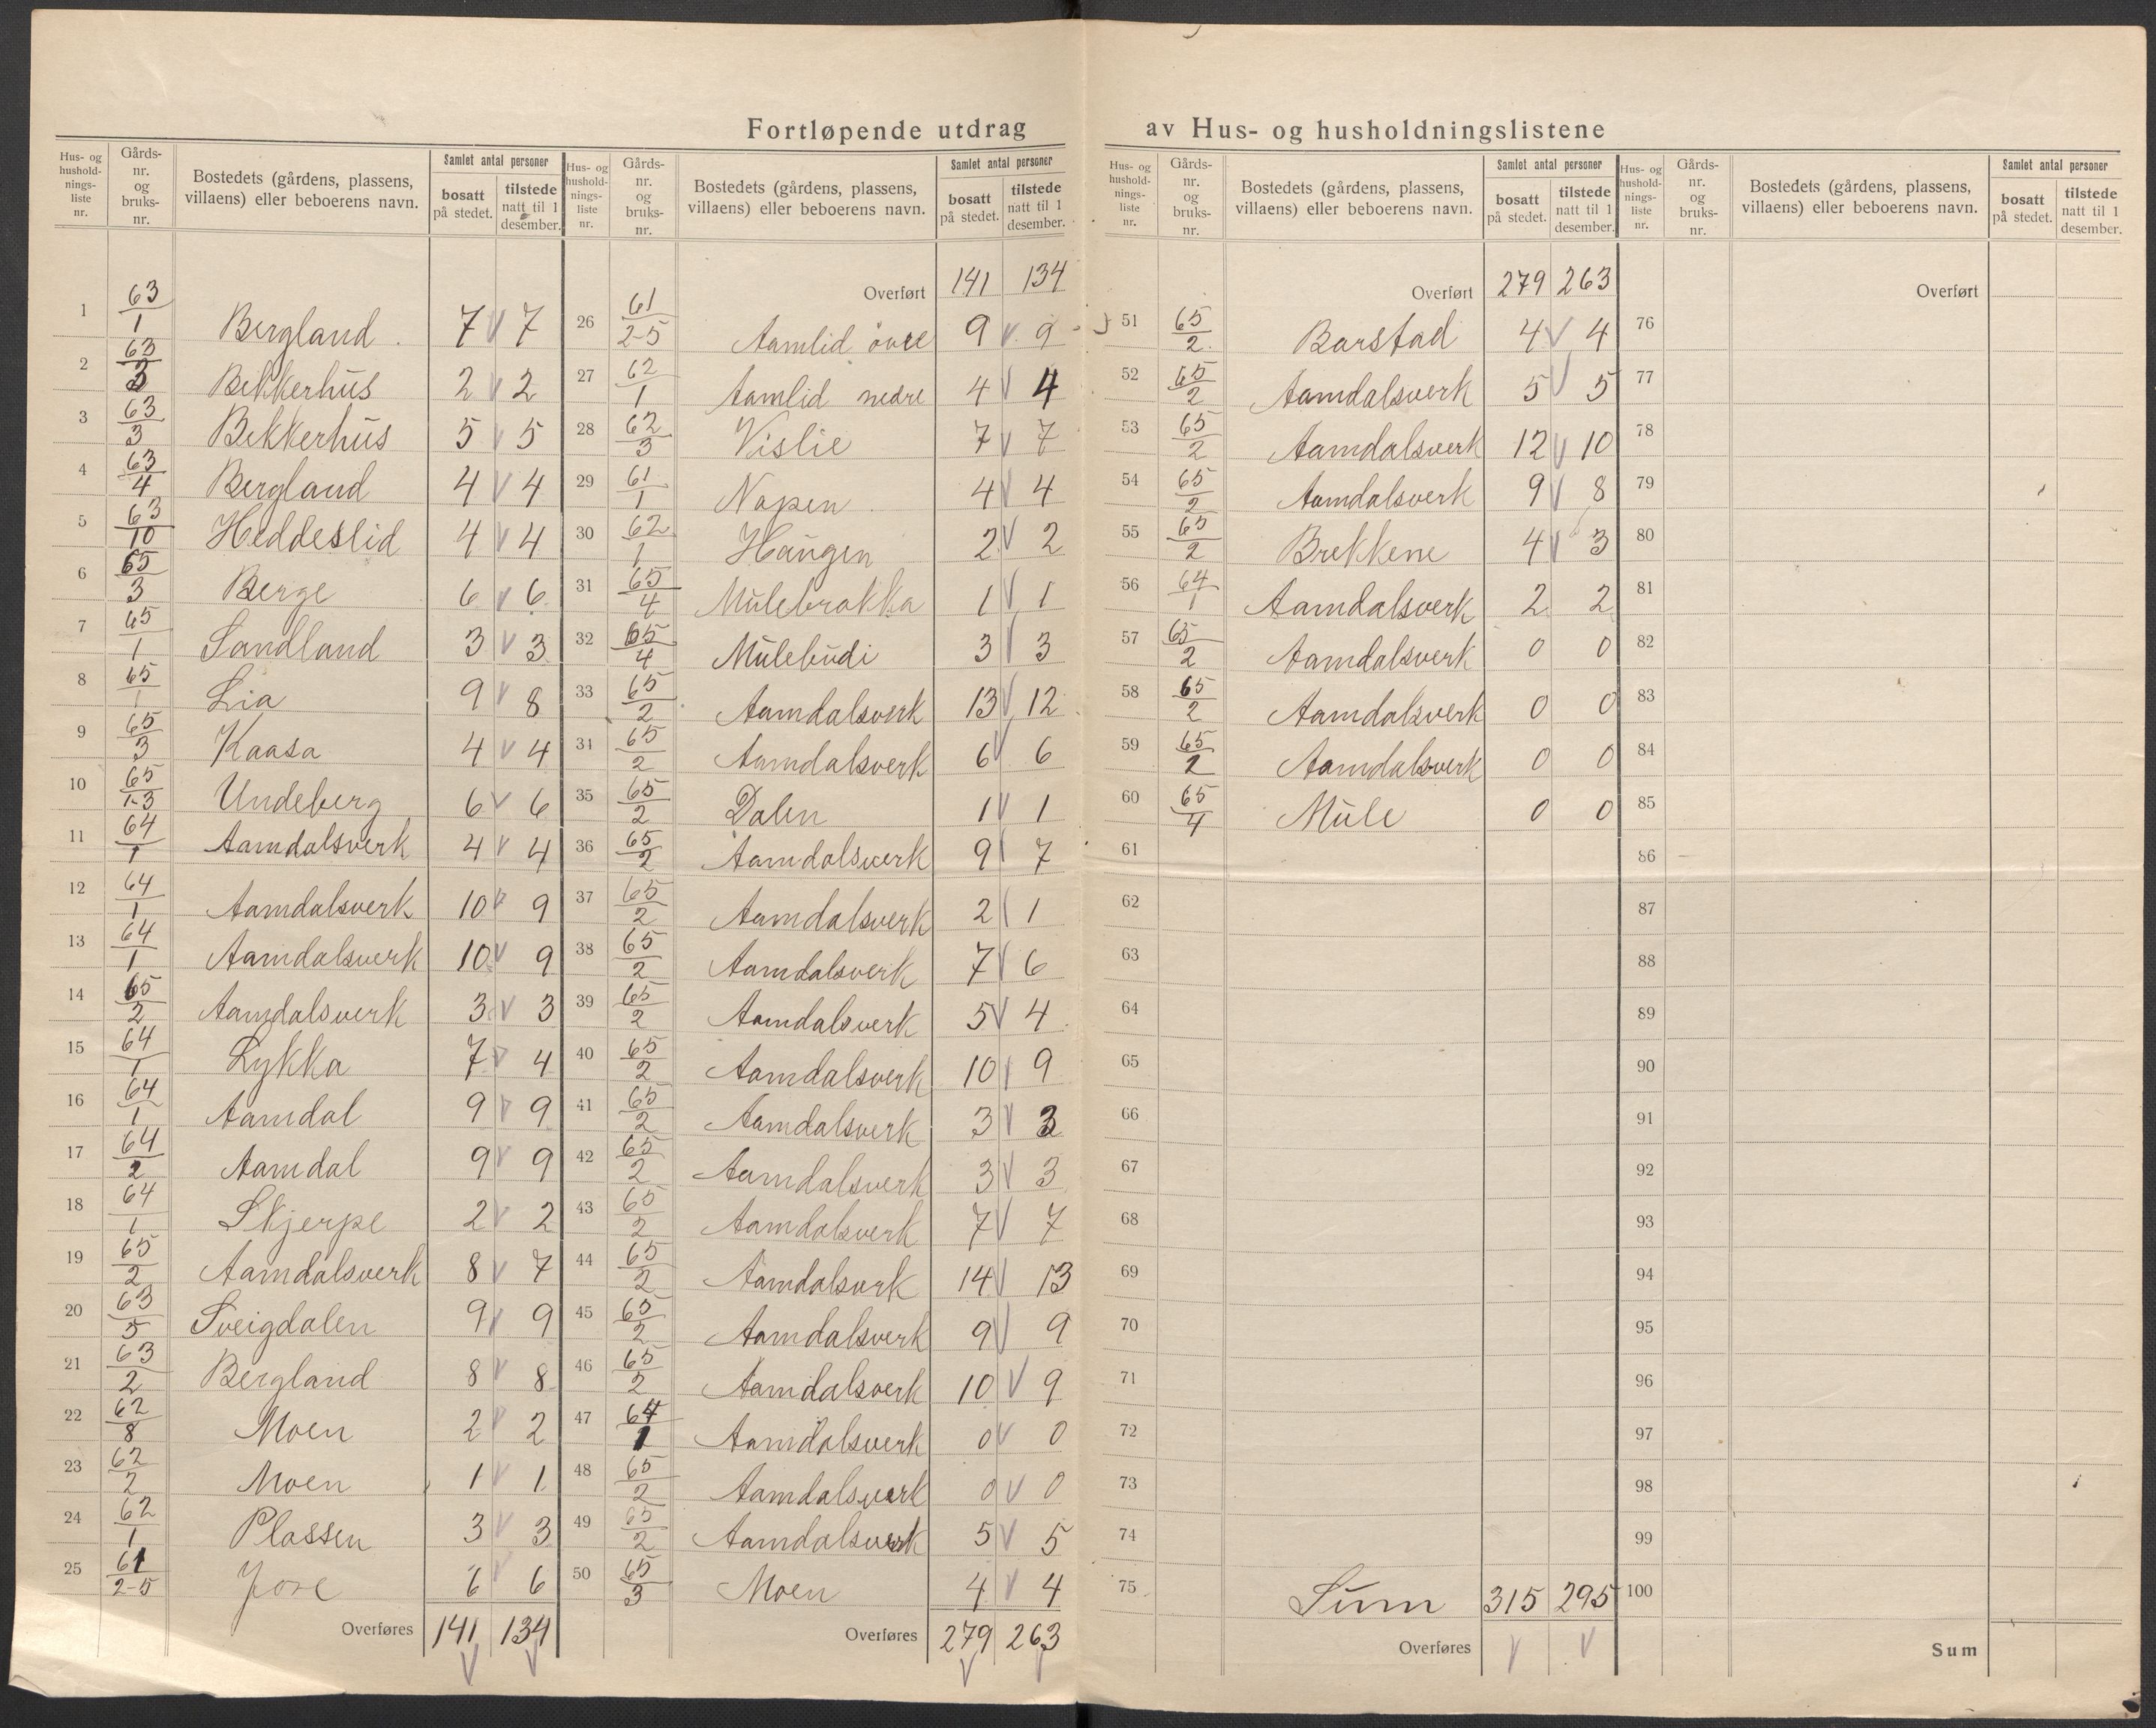 Fortløpende utdrag av Hus- og husholdningslistene
Hus- og hushold-nings-liste nr. | Gårds-nr. og bruks-nr. | Bostedets (gårdens, plassens, villaens) eller beboerens navn. | Samlet antal personer | bosatt på stedet. | tilstede natt til 1 desember.
1 63/1 Bergland 7 V 7
2 63/2 Bekkerhus 2 V 2
3 63/3 Bekkerhus 5 V 5
4 63/4 Bergland 4 V 4
5 63/10 Heddeslid 4 V 4
6 65/3 Berge 6 V 6
7 65/1 Sandland 3 V 3
8 65/1 Lia 9 V 8
9 65/3 Kaasa 4 V 4
10 65/1-3 Undeberg 6 V 6
11 64/1 Aamdalsverk 4 V 4
12 64/1 Aamdalsverk 10 V 9
13 64/1 Aamdalsverk 10 V 9
14 65/2 Aamdalsverk 3 V 3
15 64/1 Lykka 7 V 4
16 64/1 Aamdal 9 V 9
17 64/2 Aamdal 9 V 9
18 64/1 Skjerpe 2 V 2
19 65/2 Aamdalsverk 8 V 7
20 63/5 Sveigdalen 9 V 9
21 63/2 Bergland 8 V 8
22 62/8 Moen 2 V 2
23 62/2 Moen 1 V 1
24 62/1 Plassen 3 V 3
25 61/2-5 Jore 6 V 6
Overføres 141 134
V V
Hus- og hushold-nings-liste nr. | Gårds-nr. og bruks-nr. | Bostedets (gårdens, plassens, villaens) eller beboerens navn. | Samlet antal personer | bosatt på stedet. | tilstede natt til 1 desember.
Overført 141 134
26 61/2-5 Aamlid övre 9 V 9
27 62/1 Aamlid nedre 4 V 4
28 62/3 Vislie 7 V 7
29 61/1 Napen 4 V 4
30 62/1 Haugen 2 V 2
31 65/4 Mulebrakka 1 V 1
32 65/4 Mulebudi 3 V 3
33 65/2 Aamdalsverk 13 V 12
34 65/2 Aamdalsverk 6 V 6
35 65/2 Dalen 1 V 1
36 65/2 Aamdalsverk 9 V 7
37 65/2 Aamdalsverk 2 V 1
38 65/2 Aamdalsverk 7 V 6
39 65/2 Aamdalsverk 5 V 4
40 65/2 Aamdalsverk 10 V 9
41 65/2 Aamdalsverk 3 V 3
42 65/2 Aamdalsverk 3 V 3
43 65/2 Aamdalsverk 7 V 7
44 65/2 Aamdalsvrk 14 V 13
45 65/2 Aamdalsverk 9 V 9
46 65/2 Aamdalsverk 10 V 9
47 64/1 Aamdalsverk 0 V 0
48 65/2 Aamdalsverk 0 V 0
49 65/2 Aamdalsverk 5 V 5
50 65/3 Moen 4 V 4
Overføres 279 263
V V
Hus- og hushold-nings-liste nr. | Gårds-nr. og bruks-nr. | Bostedets (gårdens, plassens, villaens) eller beboerens navn. | Samlet antal personer | bosatt på stedet. | tilstede natt til 1 desember.
Overført 279 263
51 65/2 Barstad 4 V 4
52 65/2 Aamdalsverk 5 V 5
53 65/2 Aamdalsverk 12 V 10
54 65/2 Aamdalsverk 9 V 8
55 65/2 Brekkene 4 V 3
56 64/1 Aamdalsverk 2 2
57 65/2 Aamdalsverk 0 0
58 65/2 Aamdalsverk 0 0
59 65/2 Aamdalsverk 0 0
60 65/4 Mule 0 0
61
62
63
64
65
66
67
68
69
70
71
72
73
74
75 Sum 315 295
Overføres V V
Hus- og hushold-nings-liste nr. | Gårds-nr. og bruks-nr. | Bostedets (gårdens, plassens, villaens) eller beboerens navn. | Samlet antal personer | bosatt på stedet. | tilstede natt til 1 desember.
Overført
76
77
78
79
80
81
82
83
84
85
86
87
88
89
90
91
92
93
94
95
96
97
98
99
100
Sum